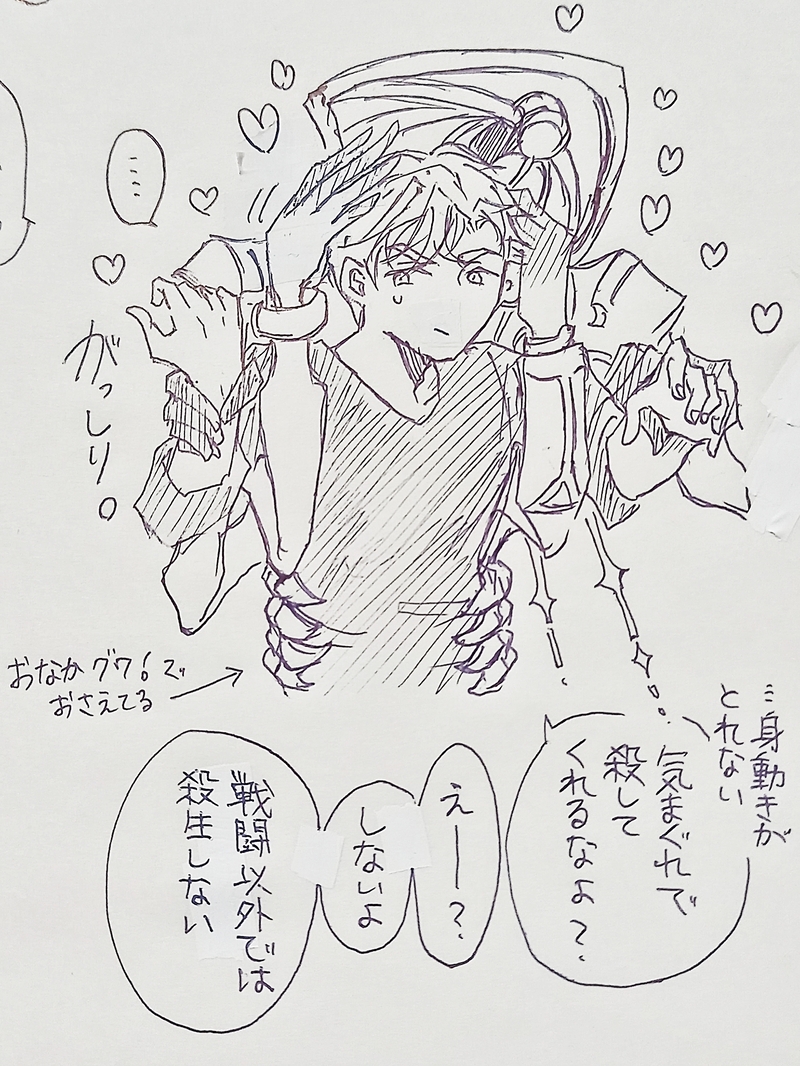 …
がっしり。
おなかグワ!で
おさえてる
…身動きが
とれない
気まぐれで
殺して
くれるなよ?
えー?
しないよ
戦闘以外では
殺生しない